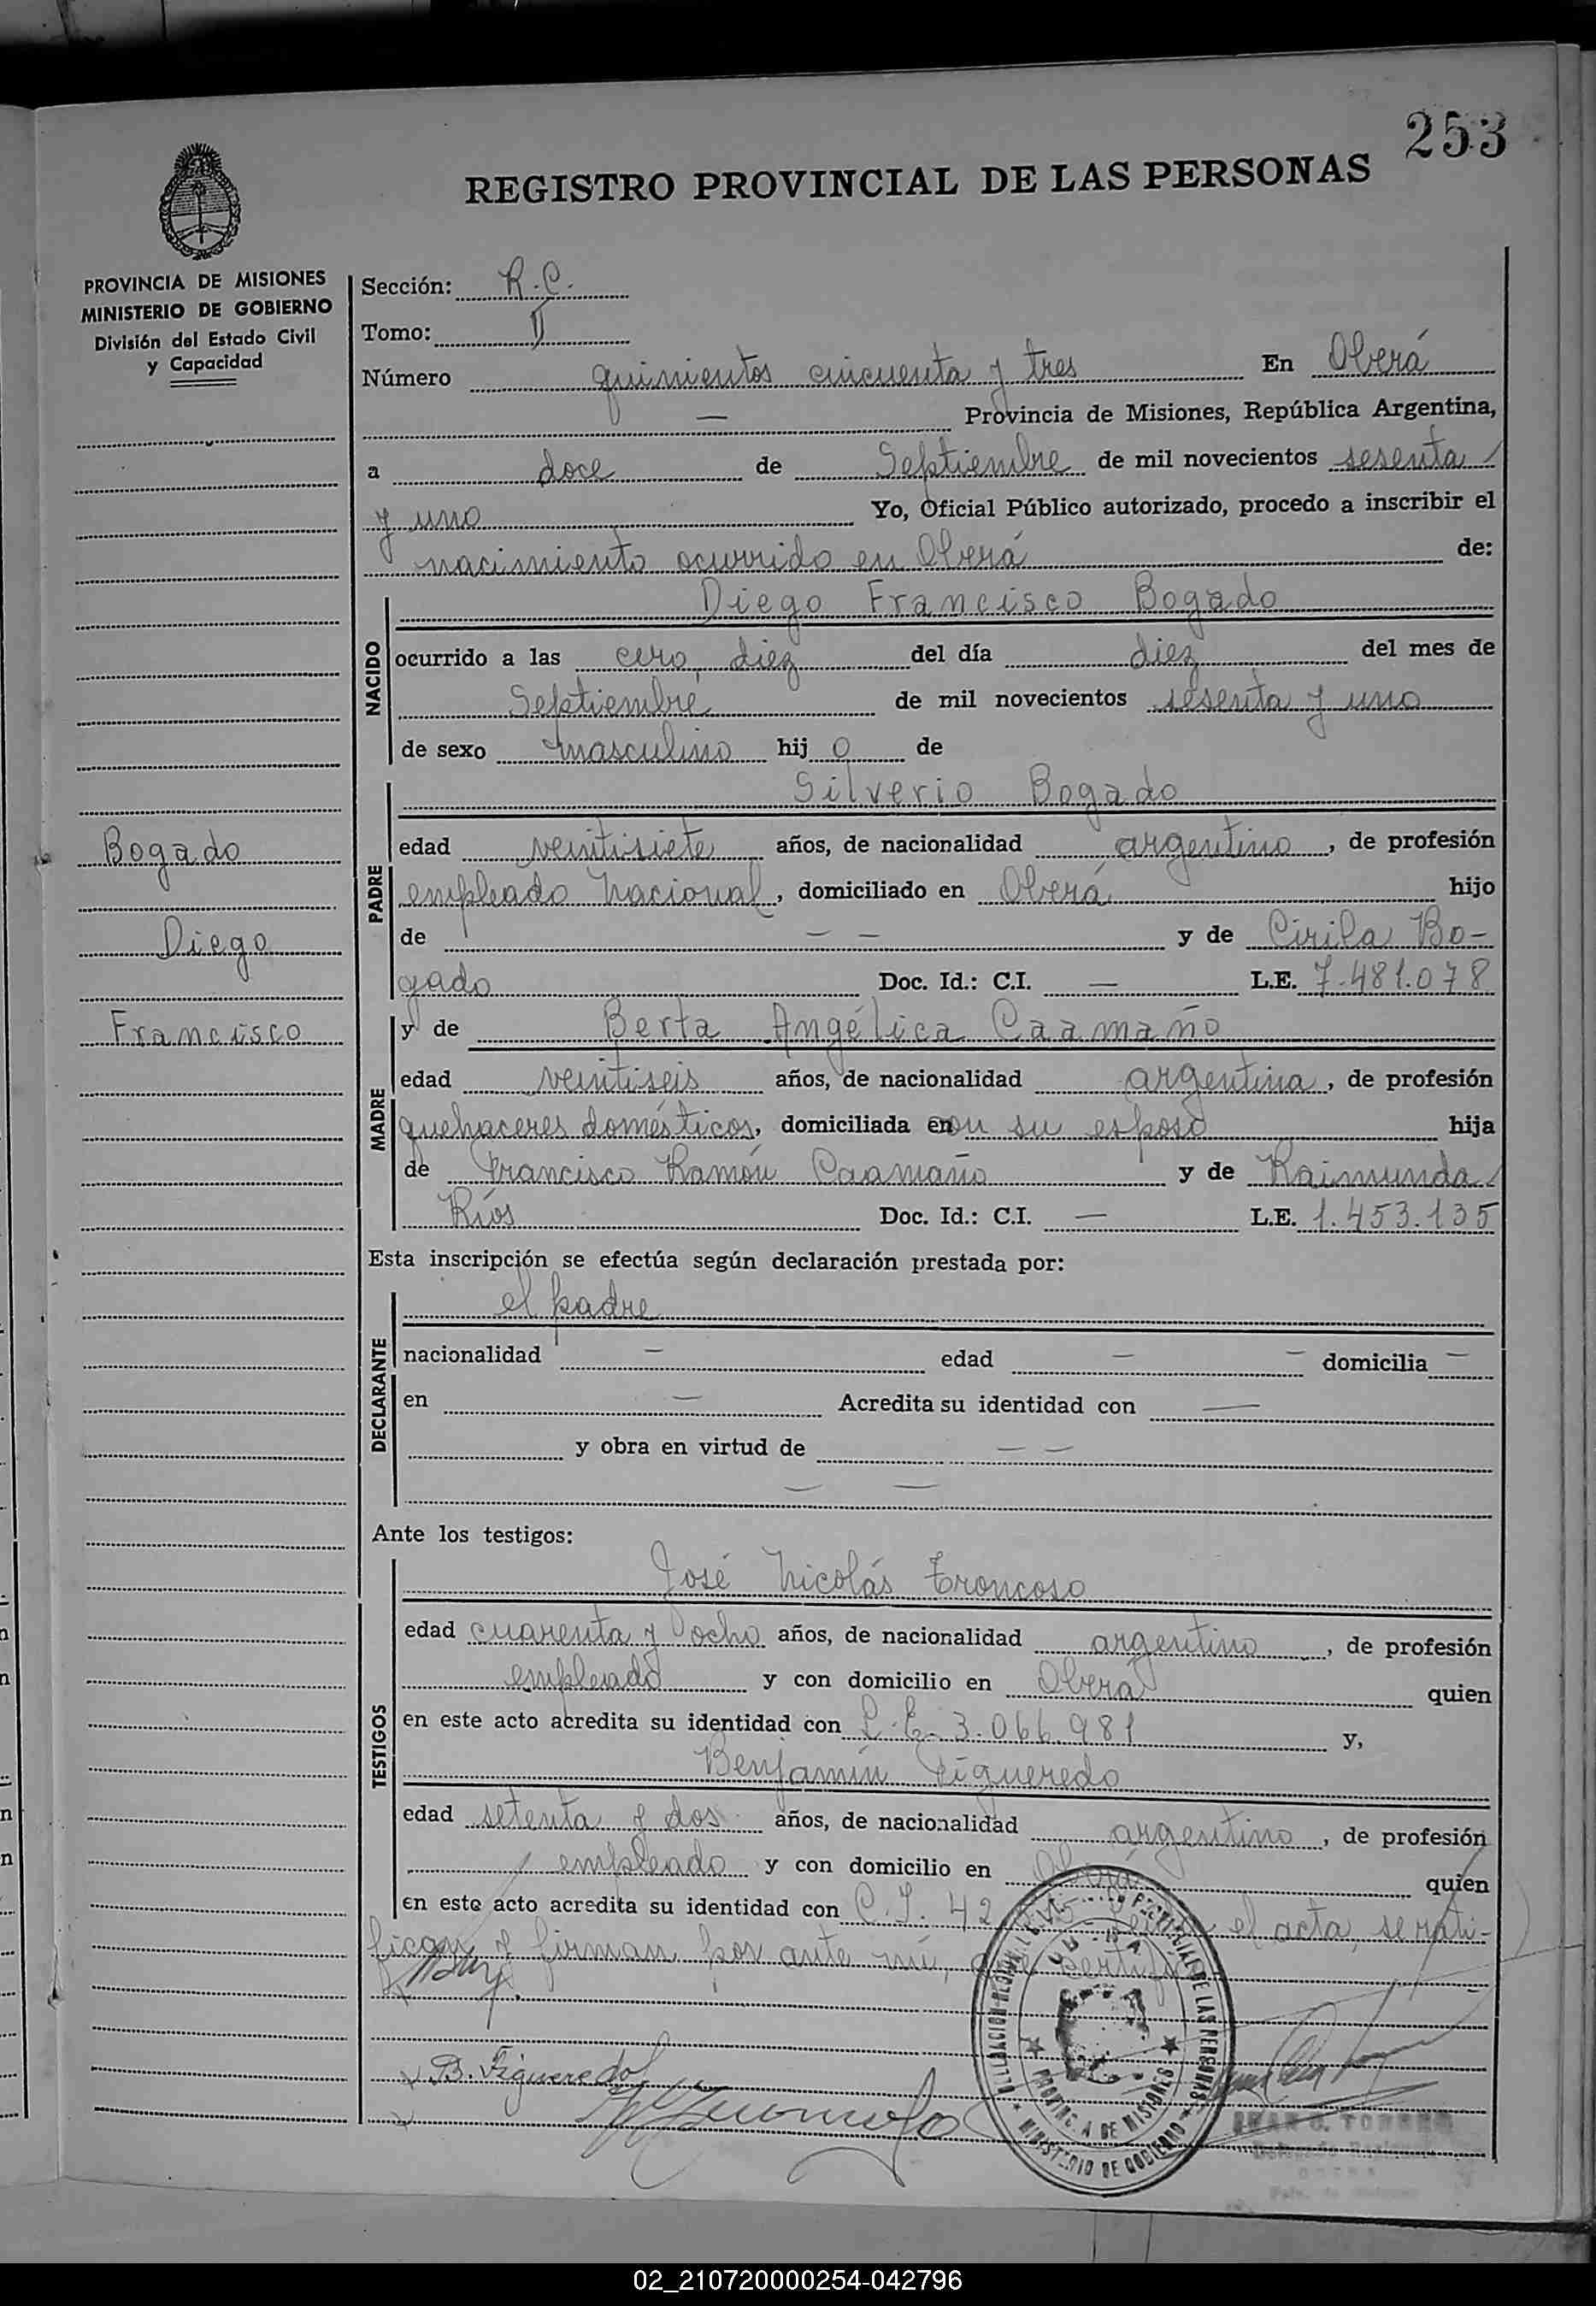 253
REGISTRO PROVINCIAL DE LAS PERSONAS
PROVINCIA DE MISIONES
MINISTERIO DE GOBIERNO
División del Estado Civil
y Capacidad
Sección: R.C.
Tomo: II
Número quinientos cincuenta y tres En Oberá
— Provincia de Misiones, República Argentina,
a doce de Septiembre de mil novecientos sesenta
y uno Yo, Oficial Público autorizado, procedo a inscribir el
nacimiento ocurrido en Oberá de:
NACIDO
Diego Francisco Bogado
ocurrido a las cero, diez del día diez del mes de
Septiembre de mil novecientos sesenta y uno
de sexo masculino hijo de
PADRE
Silverio Bogado
edad veintisiete años, de nacionalidad argentino, de profesión
empleado Nacional, domiciliado en Oberá hijo
de — — y de Cirila Bo-
gado Doc. Id.: C.I. — L.E. 7.481.078
Bogado
Diego
Francisco
MADRE
y de Berta Angélica Caamaño
edad veintiseis años, de nacionalidad argentina, de profesión
quehaceres domésticos, domiciliada en con su esposo hija
de Francisco Ramón Caamaño y de Raimunda
Ríos Doc. Id.: C.I. — L.E. 1.453.135
Esta inscripción se efectúa según declaración prestada por:
DECLARANTE
el padre
nacionalidad — edad — — domicilia —
en — Acredita su identidad con —
y obra en virtud de — —
— —
Ante los testigos:
TESTIGOS
José Nicolás Troncoso
edad cuarenta y ocho años, de nacionalidad argentino, de profesión
empleado y con domicilio en Oberá quien
en este acto acredita su identidad con L.E. 3.066.981 y,
Benjamín Figueredo
edad setenta y dos años, de nacionalidad argentino, de profesión
empleado y con domicilio en Oberá quien
en este acto acredita su identidad con C.I. 42 el acta, se rati-
fican y firman por ante mí, que certifico
B. Figueredo
DELEGACION REGIONAL DE LAS PERSONAS
PROVINCIA DE MISIONES
MINISTERIO DE GOBIERNO
JUAN C. TORRES
02_210720000254-042796